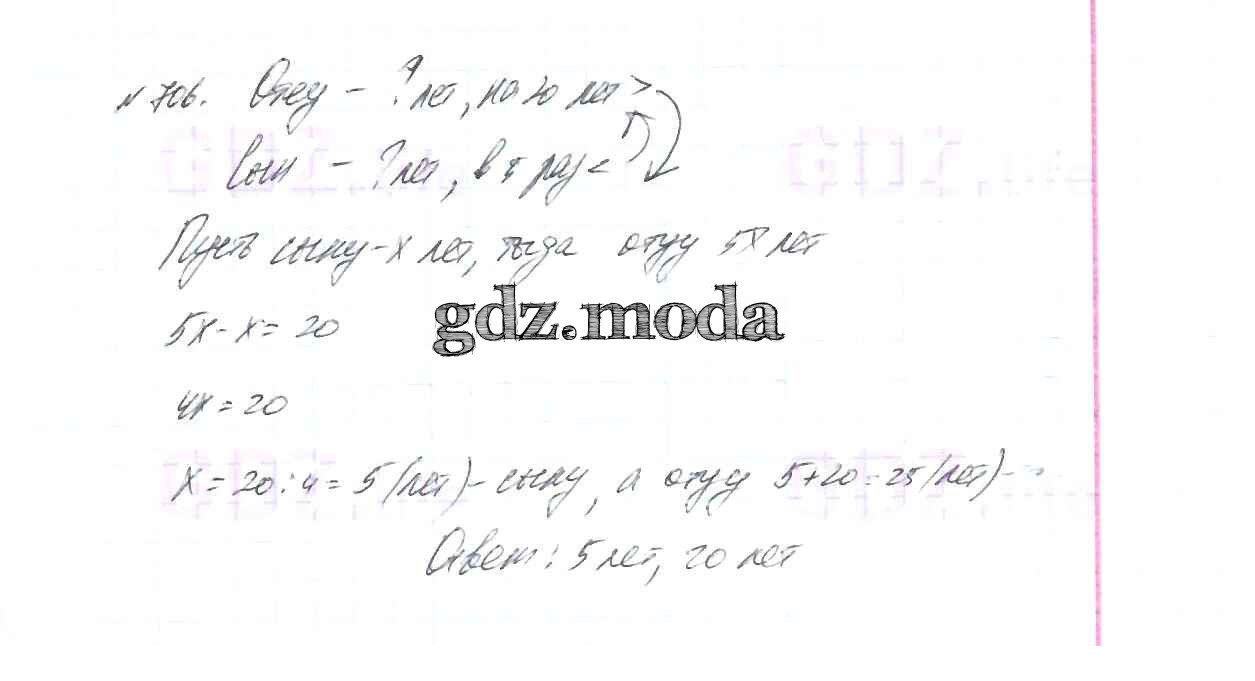 № 706. Отцу – ? лет, на 20 лет >
Сын – ? лет, в 5 раз <
Пусть сыну – х лет, тогда отцу 5х лет
5х - х = 20
gdz.moda
4х = 20
х = 20 : 4 = 5 (лет) – сыну, а отцу 5 + 20 = 25 (лет) –
Ответ: 5 лет, 20 лет